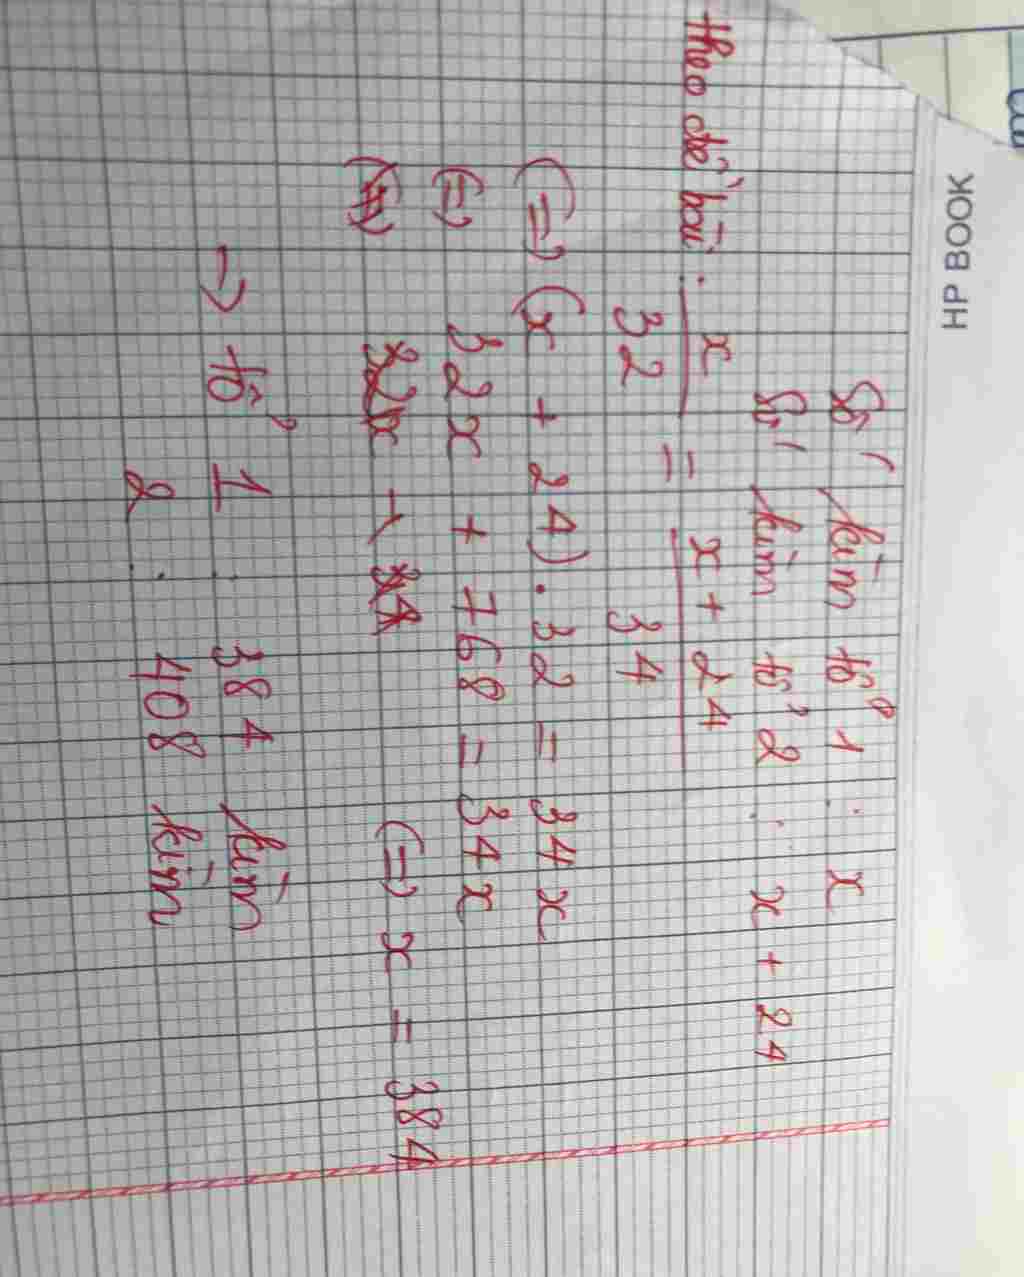 HP BOOK
Số kim tổ 1 : x
Số kim tổ 2 : x + 24
theo đề bài : x/32 = x + 24/34
(=) (x + 24) . 32 = 34x
(=) 32x + 768 = 34x
(=) x = 384
→ tổ 1 : 384 kim
2 : 408 kim